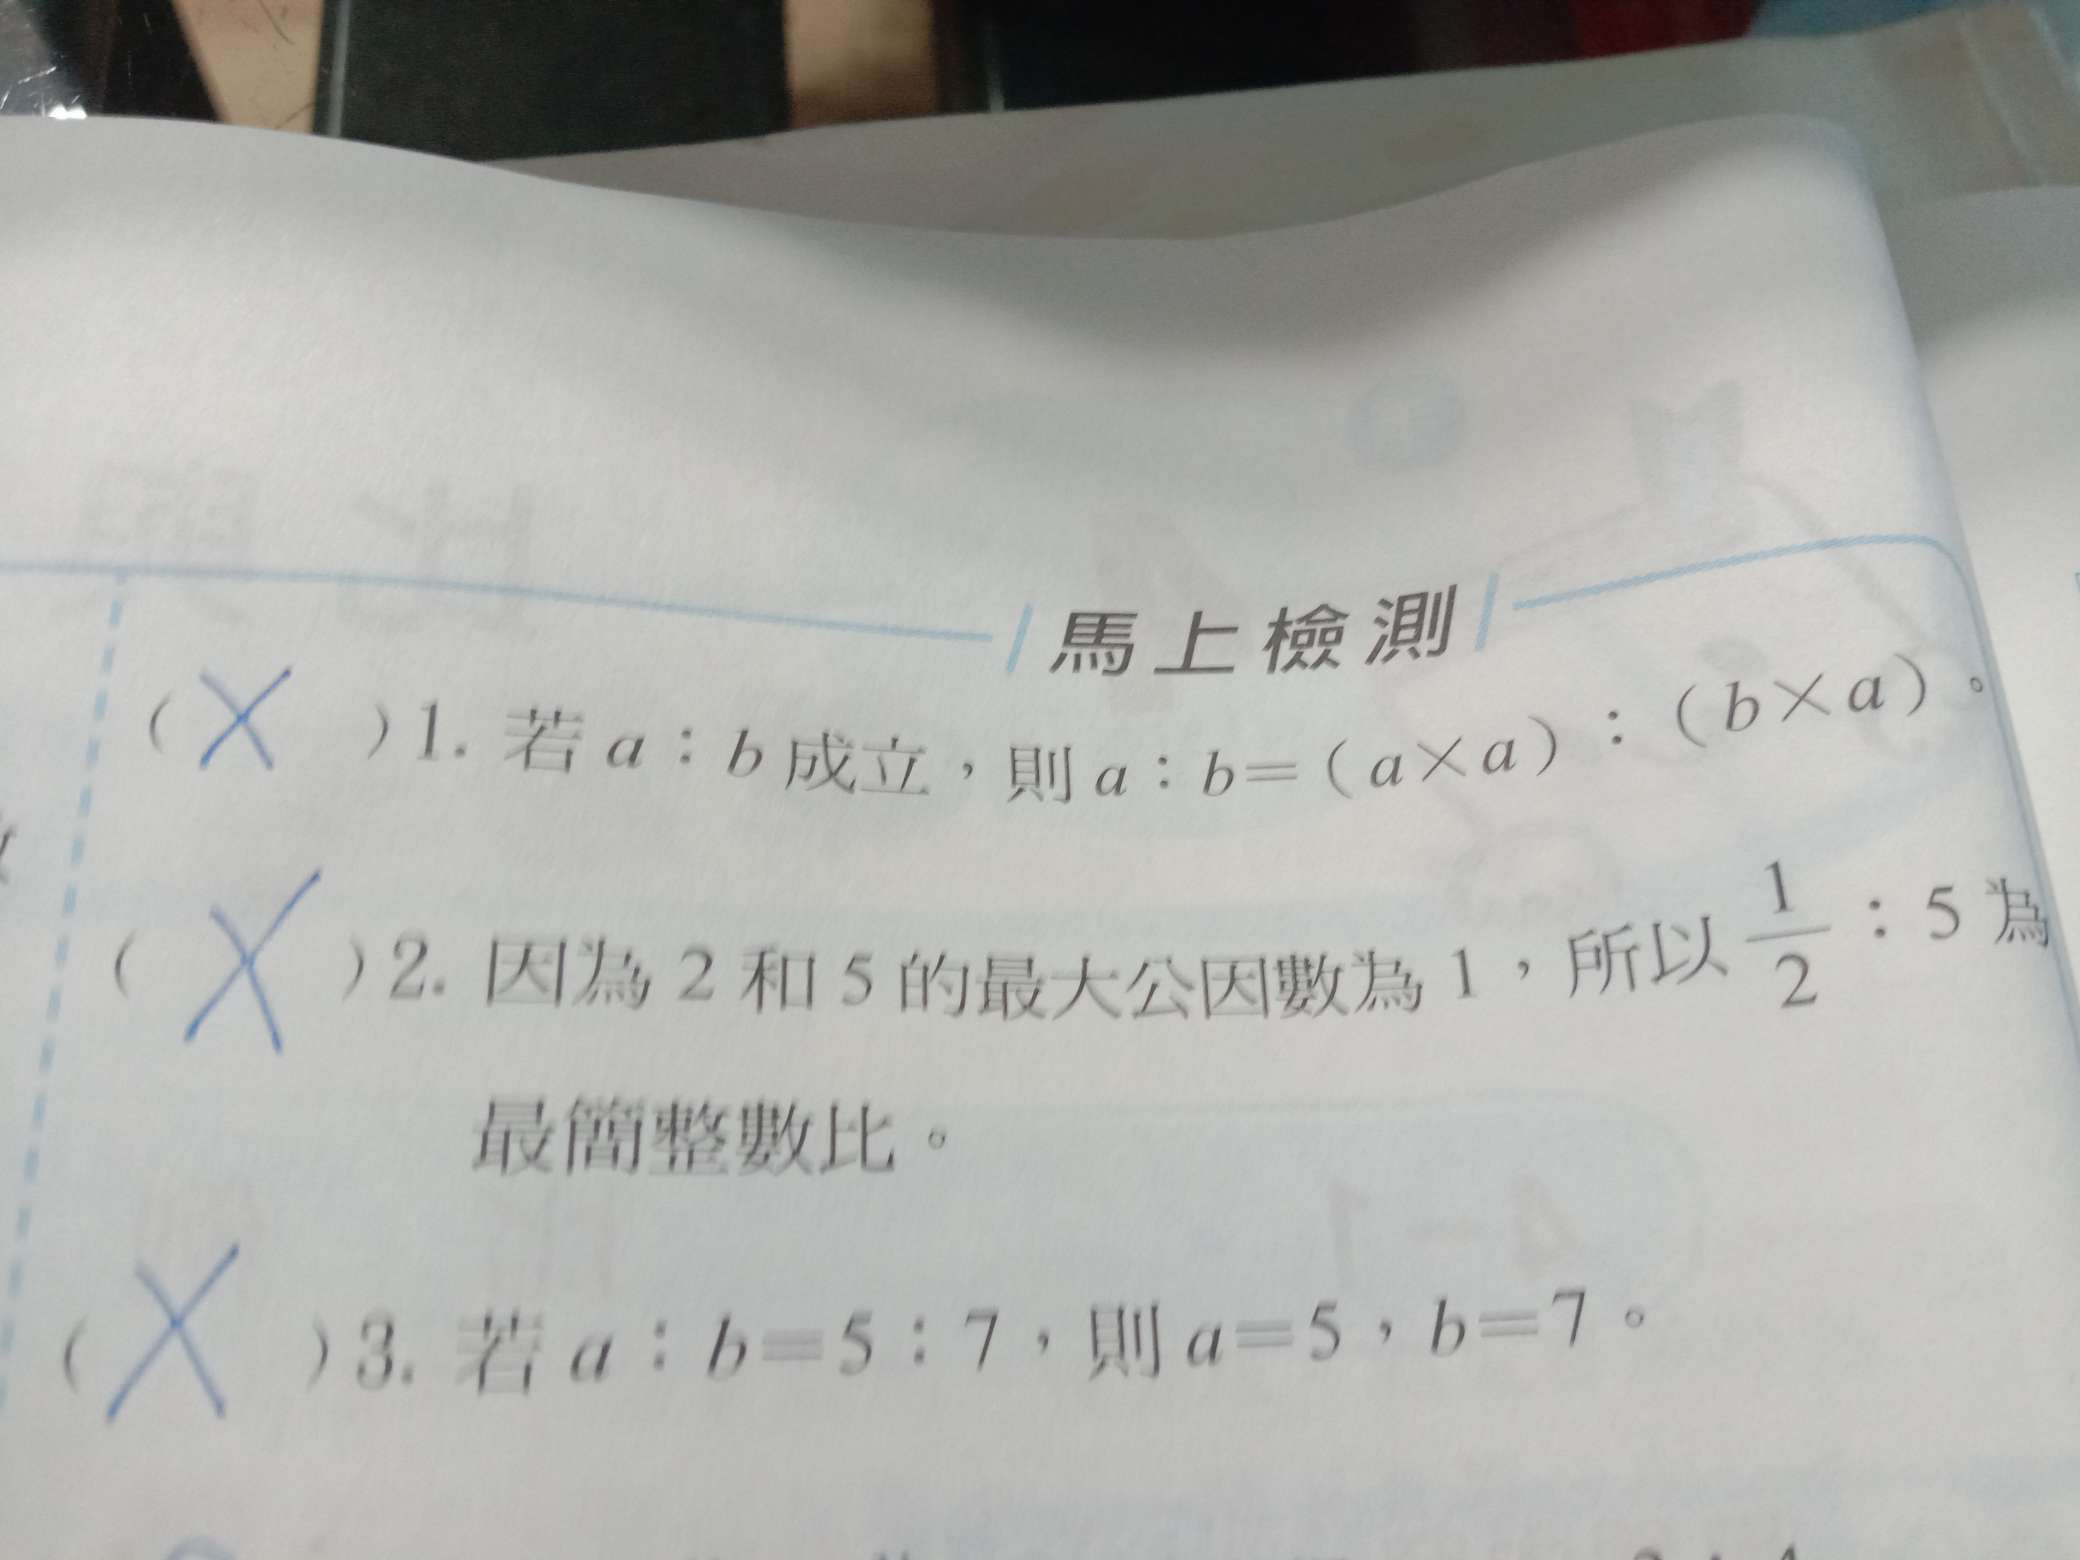 馬上檢測
( X )1. 若 a：b 成立，則 a：b=(a×a)：(b×a)。
( X )2. 因為 2 和 5 的最大公因數為 1，所以 1/2：5 為
最簡整數比。
( X )3. 若 a：b=5：7，則 a=5，b=7。